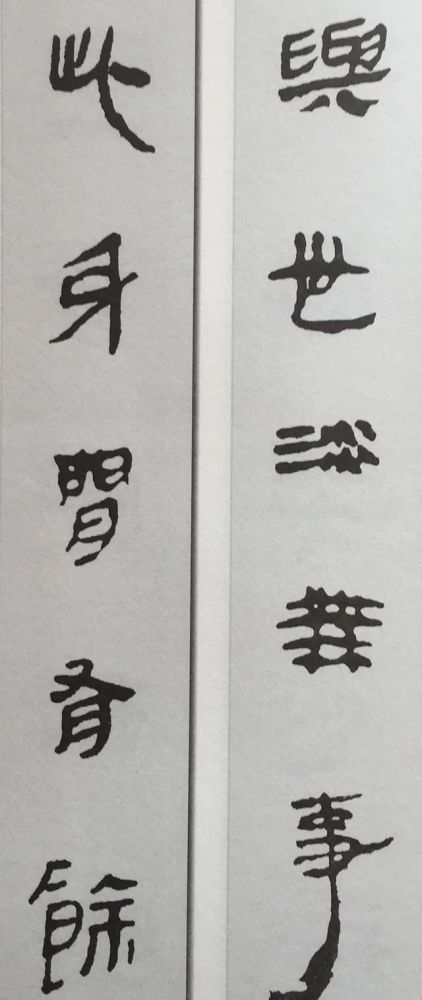 與世淡無事
此身閒有餘